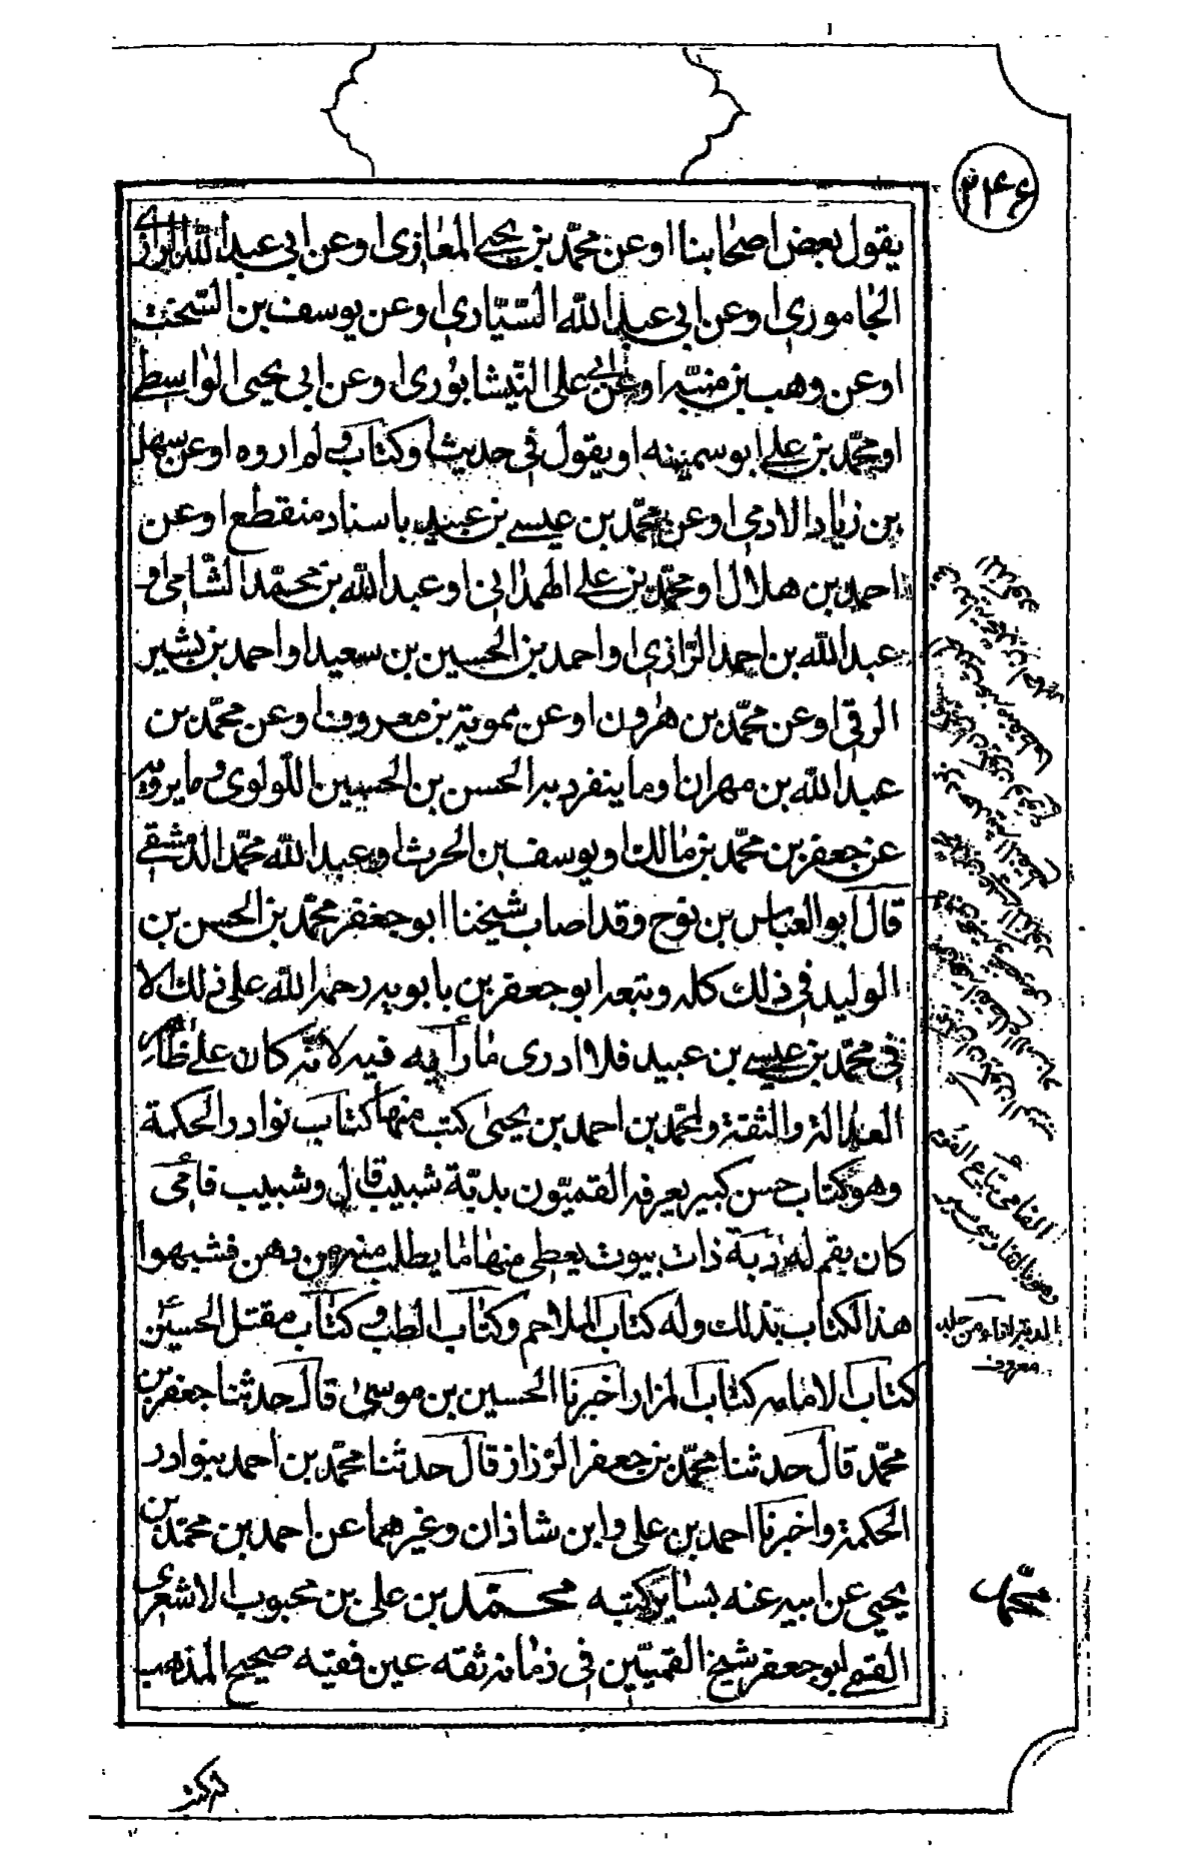 ٢٤٦
يقول بعض اصحابنا او عن محمّد بن يحيى المعاذى او عن ابى عبد الله الرازى
الجامورى او عن ابى عبد الله السّيّارى او عن يوسف بن السّخت
او عن وهب بن منبّه او عن ابى على النّيشابورى او عن ابى يحيى الواسطے
او محمّد بن علے ابو سمينه او يقول فى حديث او كتاب و لم اروه او عن سهل
بن زياد الادمى او عن محمّد بن عيسے بن عبيد باسناد منقطع او عن
احمد بن هلال او محمّد بن علے الهمدانى او عبد الله بن محمّد الشّامى او
عبد الله بن احمد الرّازى او احمد بن الحسين بن سعيد او احمد بن بشير
الرقى او عن محمّد بن هرون او عن مموية بن معروف او عن محمّد بن
عبد الله بن مهران او ما ينفرد به الحسن بن الحسين اللّولوى و ما يرويه
عن جعفر بن محمّد بن مالك او يوسف بن الحرث او عبد الله محمّد الدمشقے
قال ابو العباس بن نوح وقد اصاب شيخنا ابو جعفر محمّد بن الحسن بن
الوليد فى ذلك كله و تبعه ابو جعفر بن بابويه رحمه الله على ذلك الا
فى محمّد بن عيسے بن عبيد فلا ادرى ما رأيه فيه لانّه كان علے ظاهر
العدالة والثقة ولمحمّد بن احمد بن يحيى كتب منها كتاب نوادر الحكمة
وهو كتاب حسن كبير يعرفه القميّون بدبّة شبيب قال وشبيب فامى
كان بقم له دبة ذات بيوت يعطى منها ما يطلب منه من دهن فشبهوا
هذا الكتاب بذلك وله كتاب الملاحم وكتاب الطب و كتاب مقتل الحسين
كتاب الامامه كتاب المزار اخبرنا الحسين بن موسى قال حدثنا جعفر بن
محمّد قال حدثنا محمّد بن جعفر الرّزاز قال حدثنا محمّد بن احمد بنوادر
الحكمة واخبرنا احمد بن على وابن شاذان وغيرهما عن احمد بن محمّد بن
يحيى عن ابيه عنه بسائر كتبه محمّد بن على بن محبوب الاشعرى
القمے ابو جعفر شيخ القميّين فى زمانه ثقه عين فقيه صحيح المذهب
الفامى بايع الفوم
الدبة اناء من جلد
معروف
محمّد
له كتب